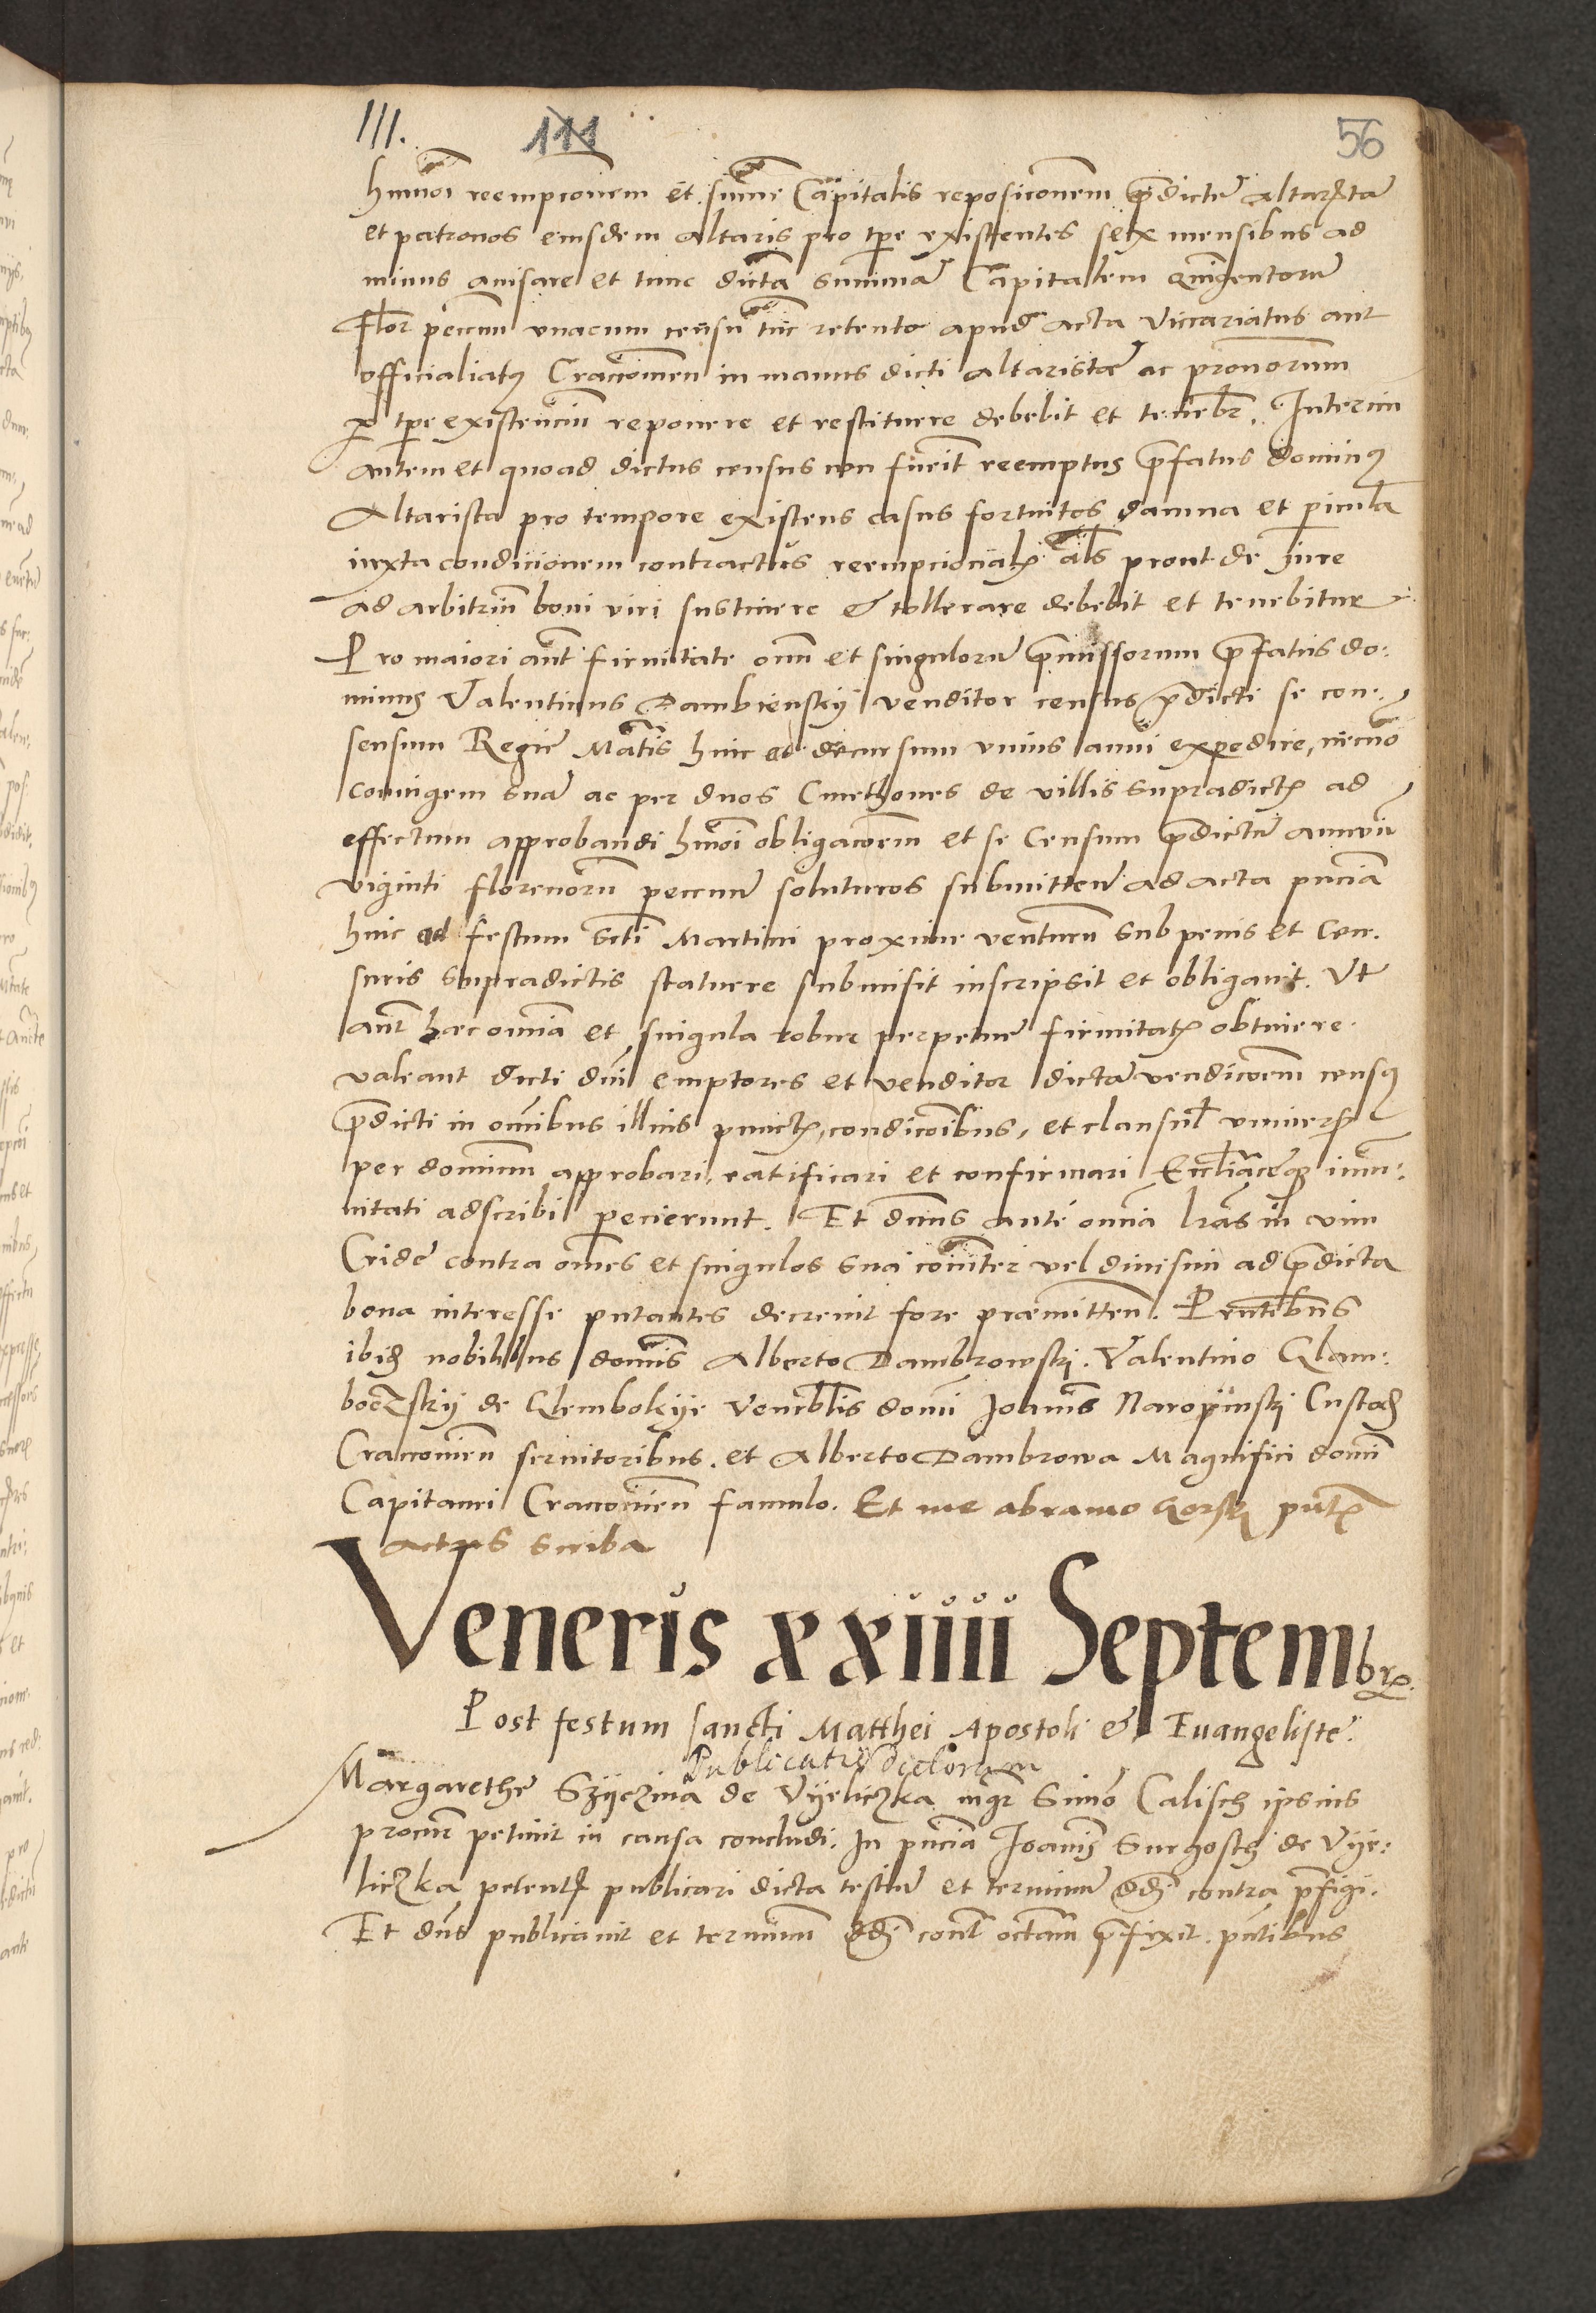 III. 111 56
hmoi reempcionem et summe Capitalis reposicionem predicte altaristam
et patronos eiusdem altaris pro tpe existentes sex mensibus ad
minus auisare et tunc dictam summam Capitalem quingentorum
Flor pecun vnacum censu tunc retento apud acta viccariatus aut
officialiatus Cracouien in manus dicti altaristae ac pronorum
pro tpe existencium reponere et restituere debebit et tenebr. Interim
autem et quoad dictus census non fuerit reemptus prefatus dominus
Altarista pro tempore existens casus fortuitos damna et pericula
iuxta condicionem contractus reempcionalis als prout de Jure
ad arbitrium boni viri sustinere & tollerare debebit et tenebitur
Pro maiori aut firmitate omm et singulorum premissorum prefatus do:
minus Valentinus Dambienskÿ venditor census predicti se con-
sensum Regie Matis hinc ad decursum vnius anni expedire, necno
coniugem suam ac per duos Cmethones de villis supradictis ad
effectum approbandi hmoi obligacoem et se Censum predictum annuum
viginti florenorum pecun soluturos submitten ad acta pnciam
hinc ad festum Scti Martini proxime venturum sub penis et Cen-
suris supradictis statuere submisit inscripsit et obligauit. Vt
aut haec omnia et singula robur perpetue firmitatis obtinere
valeant dicti dni emptores et venditor dictam vendicoem census
predicti in omnibus illius punctis, condicoibus, et clausul vniuersis
per dominum approbari, ratificari et confirmari Eccliasticeque immu:
nitati adscribi pecierunt. Et dnus ante omnia lras in vim
Cride contra omes et singulos sua coniuncter vel diuisim ad predicta
bona interesse putantes decreuit fore praemitten. Pntebus
ibid nobilibus domis Alberto Dambrowskj. Valentino Glam:
boczskÿ de Glembokÿe Venerablis domi Joannis Naropinskj Custod
Cracouien seruitoribus. et Alberto Dambrowa Magnifici domi
Capitanei Cracouien famulo. Et me abramo Gorskj pntis
actus scriba
Veneris xxiiii Septembris.
Post festum sancti Matthei Apostoli & Euangeliste.
Publicatio dictorum
Margarethe Szÿczina de Vÿeliczka mgr Simo Calisch ipsius
procur petiuit in causa concludi. In pncia Joannis Surgosth de Vÿe:
liczka petentis publicari dicta testium et terminum ddi contra prefigi.
Et dns publicauit et terminum ddi cont octauam prefixit. pntibus